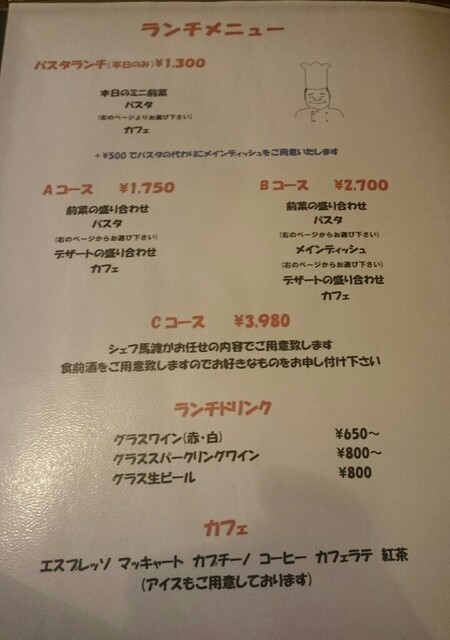 ランチメニュー
パスタランチ(平日のみ)¥1.300
本日のミニ前菜
パスタ
(右のページよりお選び下さい)
カフェ
+¥500でパスタの代わりにメインディッシュをご用意いたします
Aコース ¥1.750
前菜の盛り合わせ
パスタ
(右のページからお選び下さい)
デザートの盛り合わせ
カフェ
Bコース ¥2.700
前菜の盛り合わせ
パスタ
(右のページからお選び下さい)
メインディッシュ
(右のページからお選び下さい)
デザートの盛り合わせ
カフェ
Cコース ¥3.980
シェフ馬渡がお任せの内容でご用意致します
食前酒をご用意致しますのでお好きなものをお申し付け下さい
ランチドリンク
グラスワイン(赤・白) ¥650~
グラススパークリングワイン ¥800~
グラス生ビール ¥800
カフェ
エスプレッソ マッキャート カプチーノ コーヒー カフェラテ 紅茶
(アイスもご用意しております)